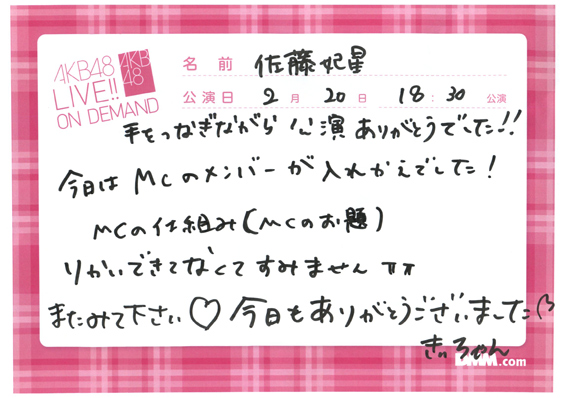 AKB48
LIVE!!
ON DEMAND
AKB
48
名前 佐藤妃星
公演日 2月20日 18:30公演
手をつなぎながら公演ありがとうでした!!
今日はMCのメンバーが入れかえでした!
MCの仕組み(MCのお題)
りかいできてなくてすみませんππ
またみて下さい♡今日もありがとうございました
きぃちゃん
DMM.com